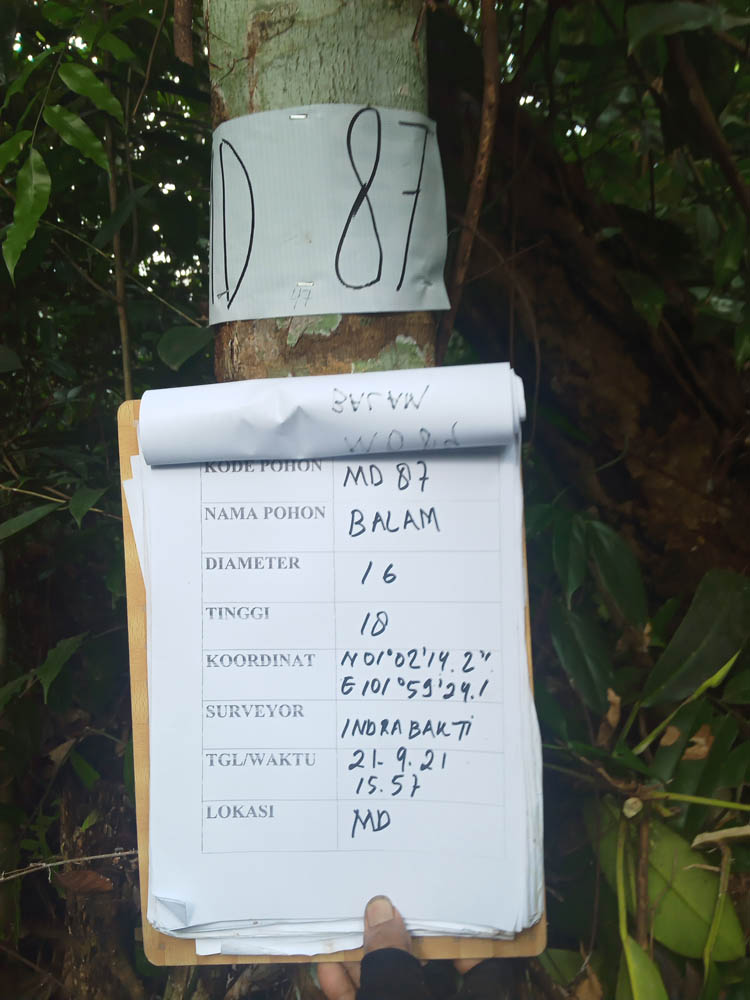 D 87
47
BALAM
KODE POHON MD 87
NAMA POHON BALAM
DIAMETER 16
TINGGI 18
KOORDINAT N 01°02'14.2"
E 101°59'29.1
SURVEYOR INDRA BAKTI
TGL/WAKTU 21.9.21
15.57
LOKASI MD